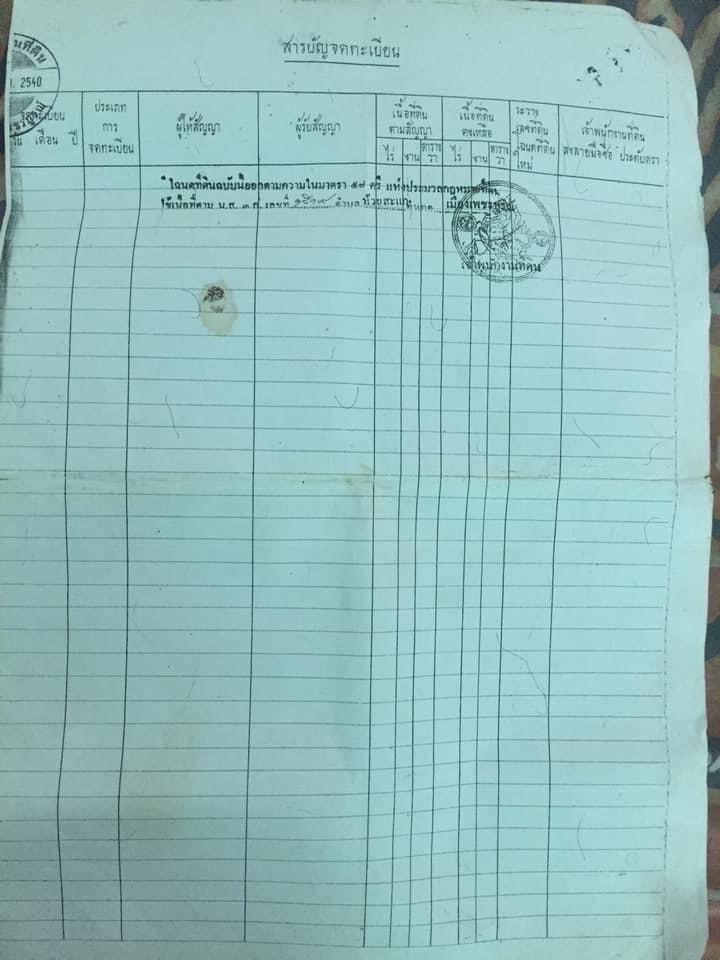 สารบัญจดทะเบียน
2540
จดทะเบียน
วัน เดือน ปี
ประเภท
การ
จดทะเบียน
ผู้ให้สัญญา
ผู้รับสัญญา
เนื้อที่ดิน
ตามสัญญา
ไร่ งาน ตาราง
วา
เนื้อที่ดิน
คงเหลือ
ไร่ งาน ตาราง
วา
ระวาง
เลขที่ดิน
โฉนดที่ดิน
ใหม่
เจ้าพนักงานที่ดิน
ลงลายมือชื่อ ประทับตรา
โฉนดที่ดินฉบับนี้ออกตามความในมาตรา ๕๘ ตรี แห่งประมวลกฎหมายที่ดิน
ใช้เนื้อที่ตาม น.ส. ๓ ก. เลขที่ ตำบล ห้วยสะแก อำเภอ เมืองเพชรบูรณ์
เจ้าพนักงานที่ดิน